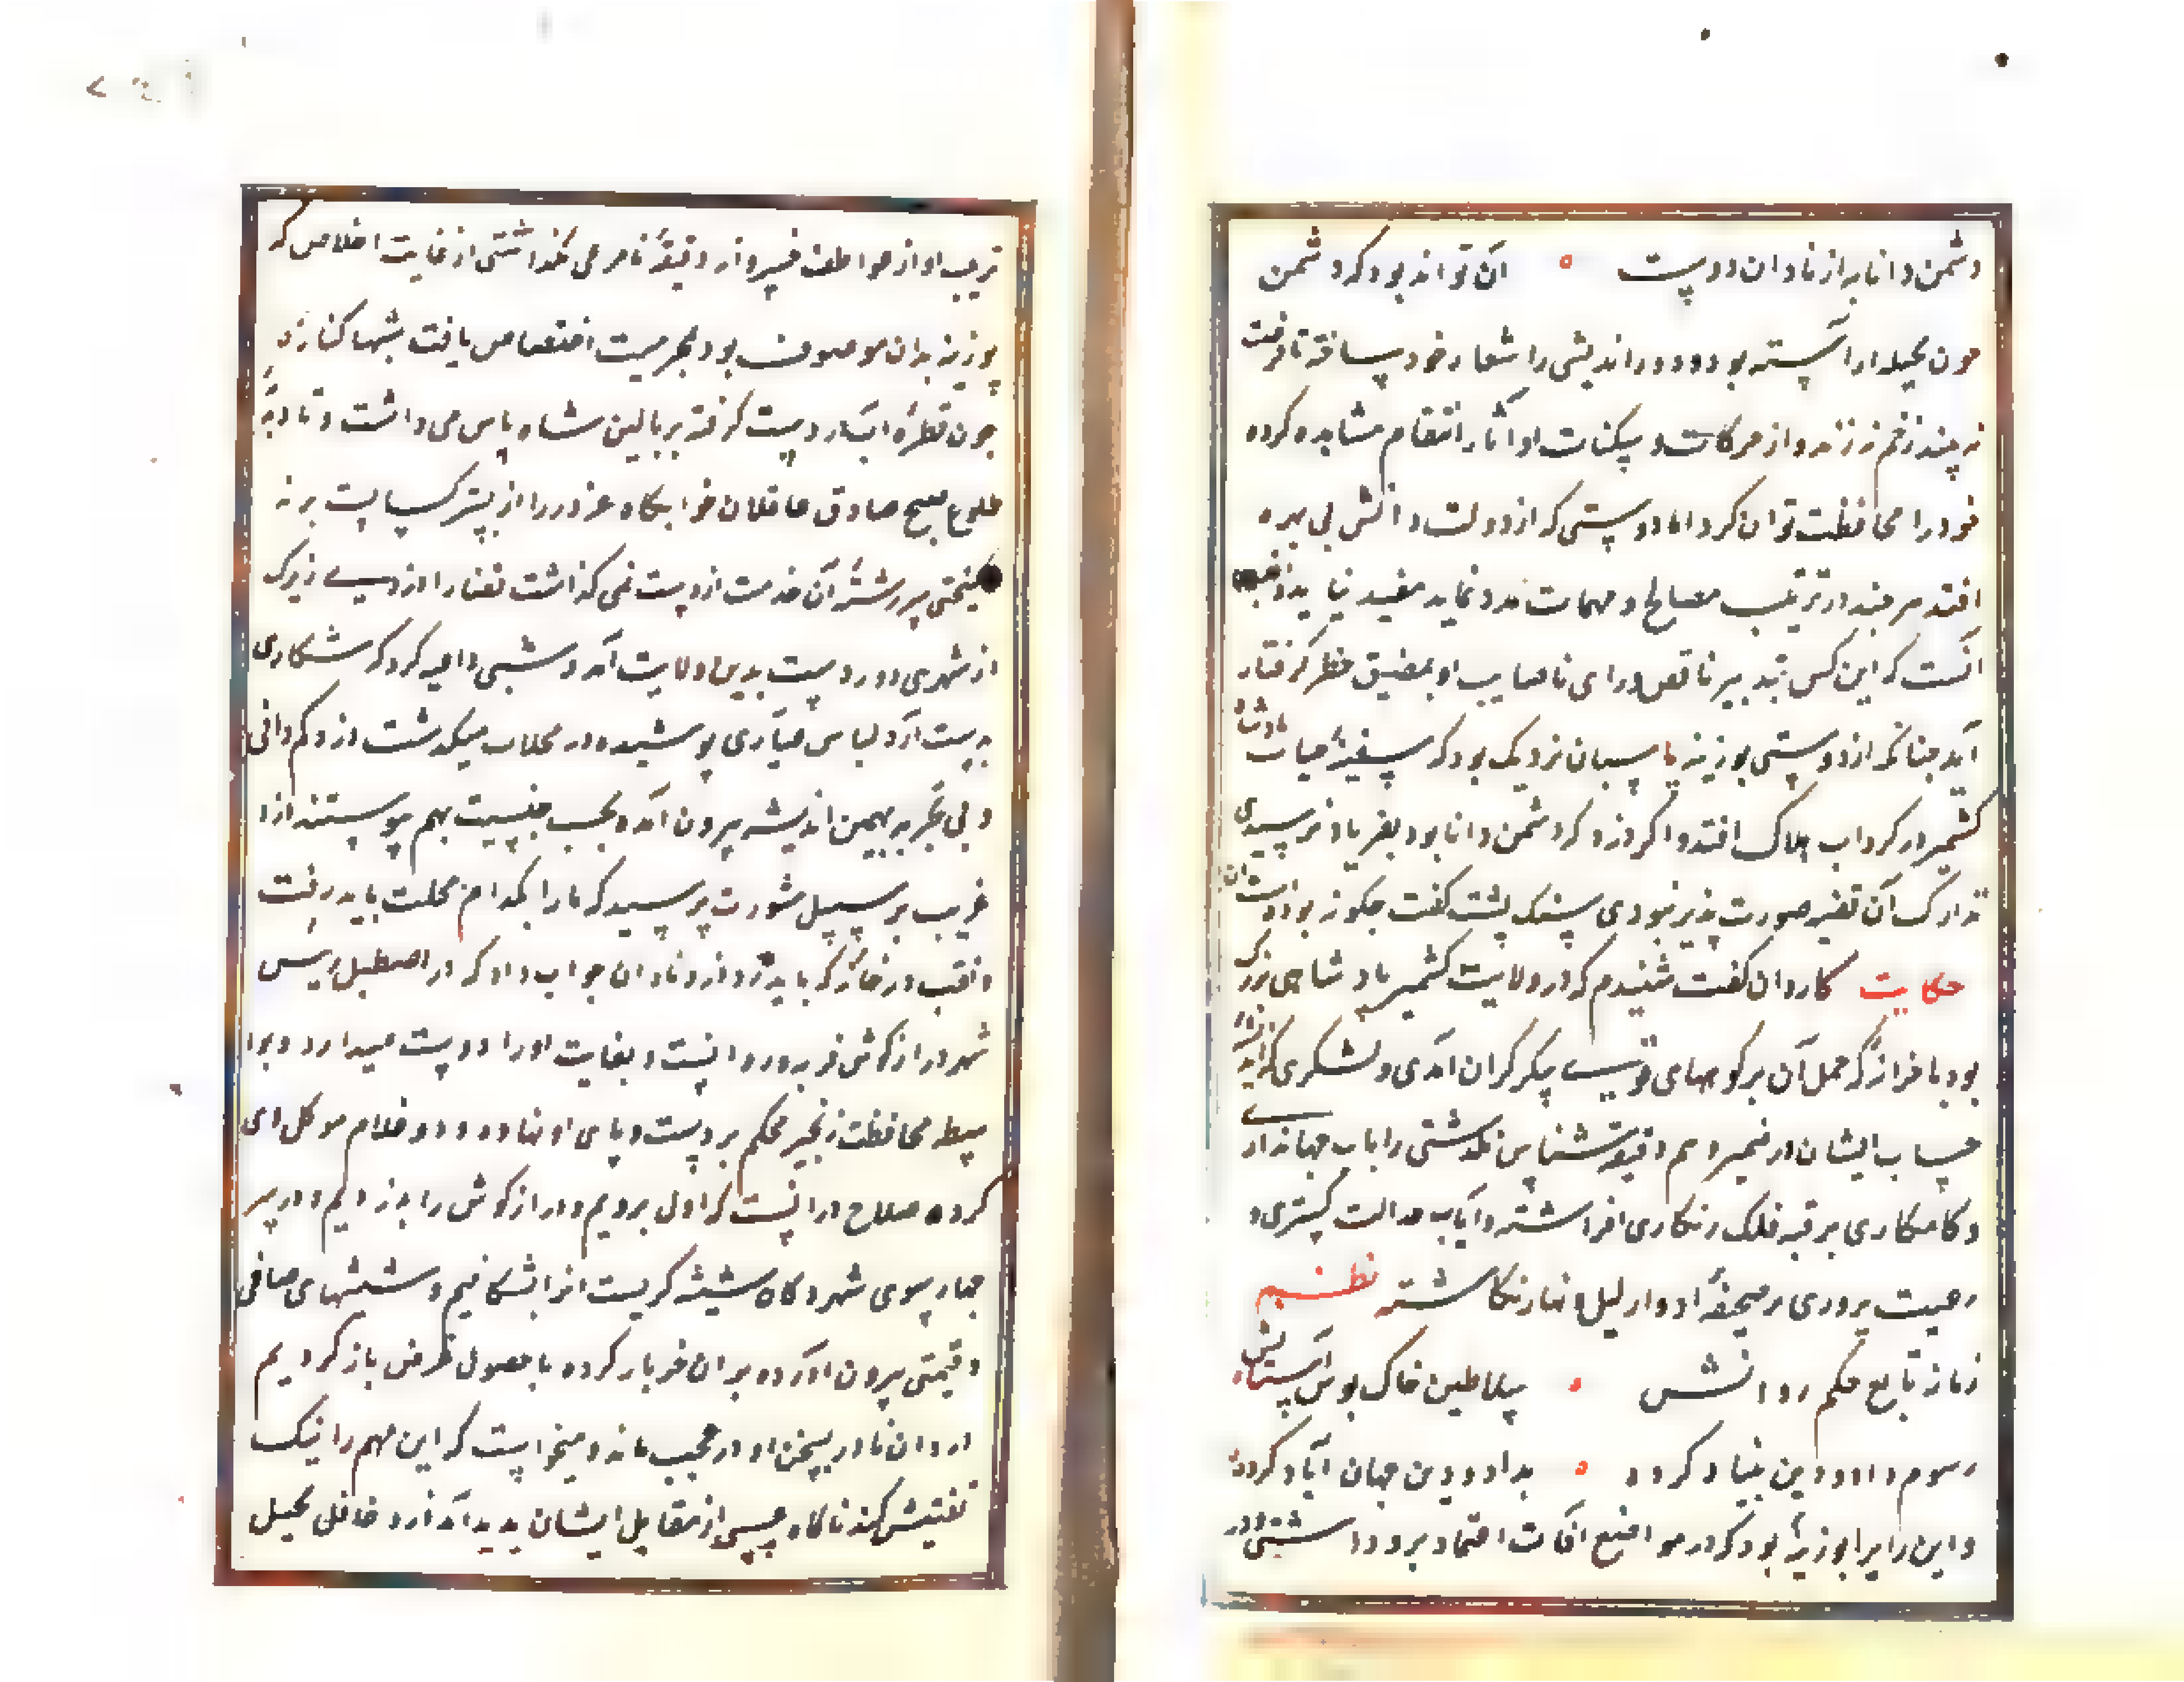 دشمن دانا به از نادان دوست آن تواند بود که دشمن
چون بحیله آراسته بود و دوراندیشی را شعار خود ساخته تا فرصت
نه بیند زخم نزند و از حرکات و سکنات او آثار انتقام مشاهده کرده
خود را محافظت توان کرد اما دوستی که از دولت دانش بی بهره
افتد هر چند در ترتیب مصالح و مهمات مدد نماید مفید نیاید
آنست که این کس بتدبیر ناقص و رای ناصایب او بمضیق خطر گرفتار
آید چنانکه از دوستی بوزینه پاسبان نزدیک بود که سفینهٔ حیات پادشاه
کشمیر در گرداب هلاک افتد و اگر دزد که دشمن دانا بود بفریاد نرسیدی
تدارک آن تفسیر صورت پذیر نبودی سنک پشت گفت چگونه بوده است آن
حکایت کاردان گفت شنیدم که در ولایت کشمیر پادشاهی بزرگ
بود با خزانه که حمل آن بر کوههای قوی پیکر گران آمدی و لشکری که
حساب ایشان در ضمیر وهم دقیقه شناس نگذشتی رایات جهانداری
و کامکاری بر قبه فلک زنگاری افراشته و آیات عدالت گستری و
رعیت پروری بر صحیفهٔ ادوار لیل و نهار نگاشته نظم
زمانه تابع حکم روانش سلاطین خاک بوس آستانش
رسوم داد و دین بنیاد کرده بداد و دین جهان آباد کرده
و این رای را بوزینهٔ بود که در مواضع آفات اعتماد برو داشتی و در
تربیت او از عواطف خسروانه دقیقهٔ نامرعی نگذاشتی از غایت اخلاص که
بوزینه بدان موصوف بود بمحرمیت اختصاص یافت شبها کناره
چون قطرهٔ آب در دست گرفته بر بالین شاه پاس می داشت و تا دم
طلوع صبح صادق غافلان خوابگاه غرور را از بستر کسالت بر نه
انگیختی سررشتهٔ آن خدمت از دست نمی گذاشت قضا را دزدی زیرک
از شهری دوردست بدین ولایت آمد و شبی داعیه کرد که شکاری
بدست آرد لباس عیاری پوشیده در محلات میگذشت دزد کم دانی
و بی تجربه بهمین اندیشه بیرون آمد و بحسب جنسیت بهم پیوستند دزد
غریب بر سبیل مشورت پرسید که ما را بکدام محلت باید رفت
و نقب در خانه که باید زد دزد نادان جواب داد که در اصطبل رییس
شهر دراز گوشی فربه و رونده است و بغایت او را دوست میدارد و بوا
سطه محافظت زنجیر محکم بر دست و پای او نهاده و دو غلام موکل او
کرده صلاح درانست که اول برویم و دراز گوش را بدزدیم و در سر
چهارسوی شهر دکان شیشه گریست انرا بشکافیم و شیشهای صافی
و قیمتی بیرون آورده بر آن خر بار کرده با حصول غرض باز گردیم
دزد دانا در سخن او در عجب ماند و میخواست که این مهم را نیک
تفتیش کند ناگاه عسسی از مقابل ایشان پدید آمد دزد عاقل بحیل